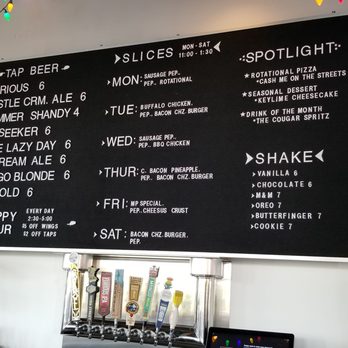 TAP BEER
RIOUS 6
STLE CRM. ALE 6
MMER SHANDY 4
SEEKER 6
E LAZY DAY 6
REAM ALE 6
GO BLONDE 6
OLD 6
PPY
UR
EVERY DAY
2:30-5:00
$5 OFF WINGS
$2 OFF TAPS
SLICES
MON-SAT
11:00 - 1:30
MON: SAUSAGE PEP.
PEP. ROTATIONAL
TUE: BUFFALO CHICKEN.
PEP. BACON CHZ.BURGER
WED: SAUSAGE PEP.
PEP.. BBQ CHICKEN
THUR: C. BACON PINEAPPLE.
PEP. BACON CHZ.BURGER
FRI: MP SPECIAL.
PEP.CHEESUS CRUST
SAT: BACON CHZ.BURGER.
PEP.
SPOTLIGHT
ROTATIONAL PIZZA
*CASH ME ON THE STREETS
SEASONAL DESSERT
*KEYLIME CHEESECAKE
DRINK OF THE MONTH
*THE COUGAR SPRITZ
SHAKE
VANILLA 6
CHOCOLATE 6
M&M 7
OREO 7
BUTTERFINGER 7
COOKIE 7